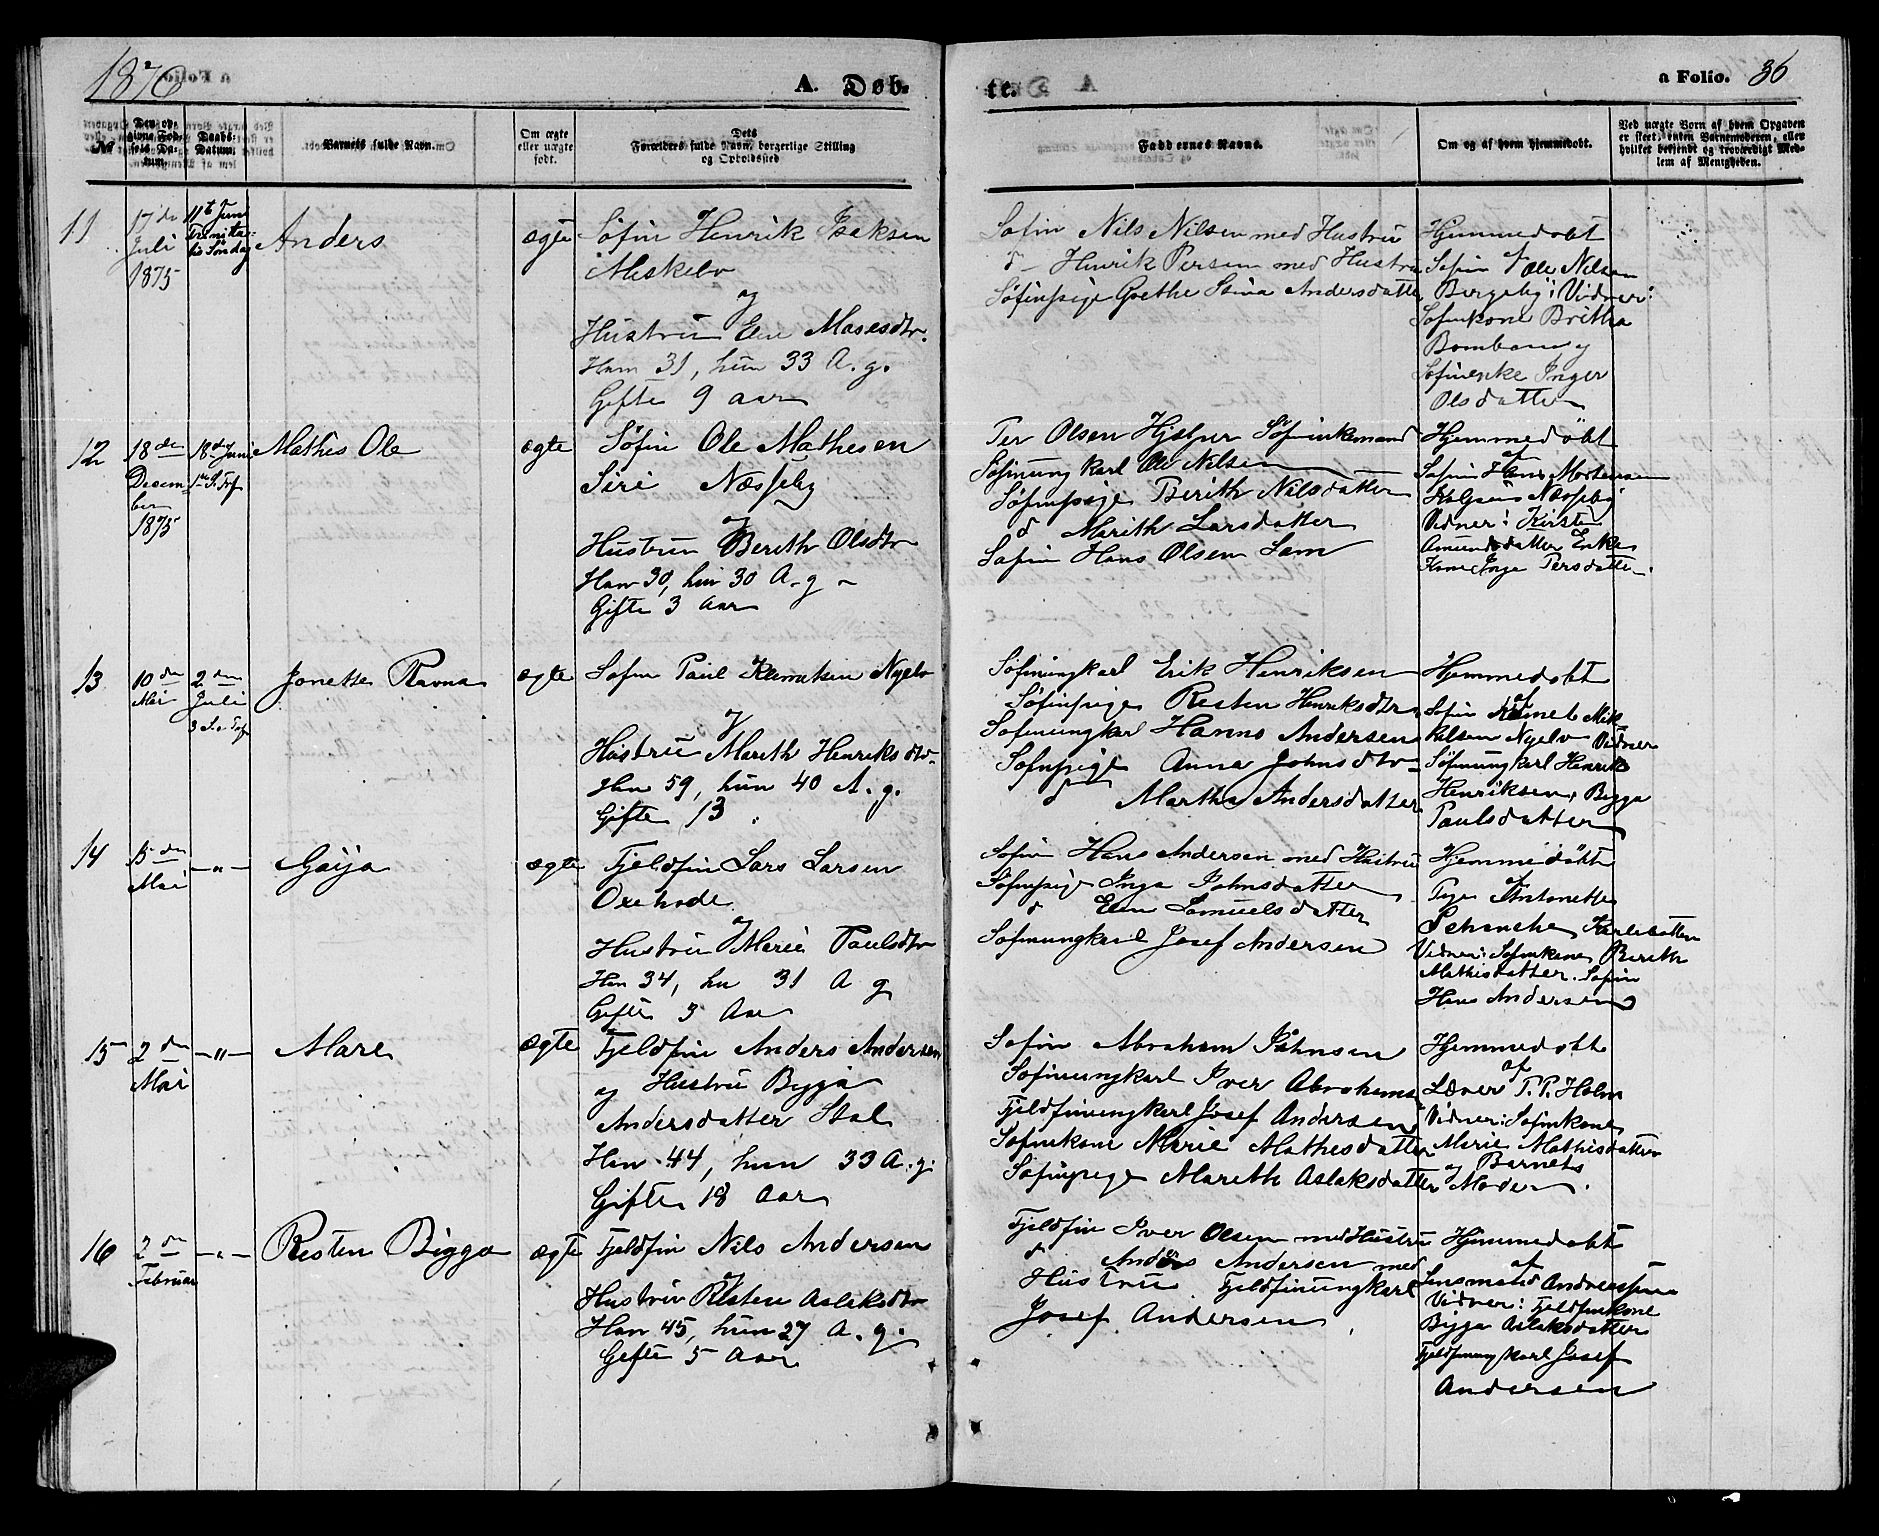 1876
A. Døb-
te.
a Folio. 36
№
Den opgivne Fødsels Datum.
Daabs-Datum.
Barnets fulde Navn.
Om ægte eller uægte født.
Dets Forældres fulde Navn, borgerlige Stilling og Opholdssted
Faddernes Navne.
Om og af hvem hjemmedøbt.
Ved uægte Børn af hvem Opgaven er skeet, enten Barnemoderen, eller hvilket bekjendt og troværdigt Medlem af Menigheden.
11
17de
Juli
1875
11te Juni
Trinita-
tis Søndag
Anders
ægte
Søfin Henrik Isaksen
Meskelv
og
Hustru Elen Mosesdtr.
Ham 31, hun 33 A. g.
Gifte 9 aar
Søfin Nils Nilsen med Hustru
d - Henrik Persen med Hustru
Søfinpige Grethe Stina Andersdatter
Hjemmedøbt
Søfin Ole Nilsen
Bergeby; Vidner:
Søfinkone Britha
Bomban og
Søfinenke Inger
Olsdatter
12
18de
Decem
ber
1875
18de Juni
1te S. Trf
Mathis Ole
ægte
Søfin Ole Mathesen
Siri Næsseby
og
Hustru Berith Olsdtr
Han 30, hun 30 A. g
Gifte 3 Aar
Per Olsen Hjelper Søfinkemand
Søfinung karl Ole Nilsen
Søfinpige Berith Nilsdatter
d Marith Larsdatter
Søfin Hans Olsen Lam
Hjemmedøbt
af
Søfin Hans Mortensen
Næsseby
Vidner: Kirsten
Amundsdatter Enke
Kone Inga Persdatter
13
10de
Mai
2den
Juli
3 S. e. Trf
Jonette Ravna
ægte
Søfin Paul Klemetsen Nyelv
og
Hustru Marith Henriksdtr
Han 59, hun 40 A. g.
Gifte 13
Søfinungkarl Erik Henriksen
Søfinpige Resten Henriksdtr
Søfinungkarl Hanno Andersen
Søfinpige Anna Johnsdtr
d Martha Andersdatter
Hjemmedøbt
af
Søfin Klemet Mik-
kelsen Nyelv Vidner
Søfinungkarl Henrik
Henriksen, Bigga
Paulsdatter
14
5den
Mai
-"-
Gaija
ægte
Fjeldfin Lars Larsen
Oxehode
og
Hustru Marie Paulsdtr
Han 34, hu 31 A g
Gifte 3 Aar
Søfin Hans Andersen med Hustru
Søfinpige Inga Johnsdatter
d Elen Samuelsdatter
Søfinungkarl Josef Andersen
Hjemmedøbt
af
Pige Antonette
Schanche, Karlebotten
Vidner: Søfinkone Berith
Mathisdatter. Søfin
Hans Andersen
15
2den
Mai
-"-
Mare
ægte
Fjeldfin Anders Andersen
og Hustru Bigga
Andersdatter Stal
Han 44, hun 33 A. g.
Gifte 18 Aar
Søfin Abraham Johnsen
Søfinungkarl Iver Abrahams
Fjeldfinungkarl Josef Andersen
Søfinkone Marie Mathesdatter
Søfinpige Marith Aslaksdatter
Hjemmedøbt
af
Lærer P. P. Holm
Vidner: Søfinkone
Marie Mathisdatter
og Barnets
Moder
16
2den
Februar
-"-
Resten Bigga
ægte
Fjeldfin Nils Andersen
og
Hustru Resten Aslaksdtr
Han 45, hun 27 A. g.
Gifte 5 Aar
Fjeldfin Iver Olsen med Hustru
d Anders Andersen med
Hustru Fjeldfinungkarl
Josef Andersen
Hjemmedøbt
af
Lensmand Andreassen
Vidner: Fjeldfinkone
Bigga Aslaksdatter
Fjeldfinung karl Josef
Andersen